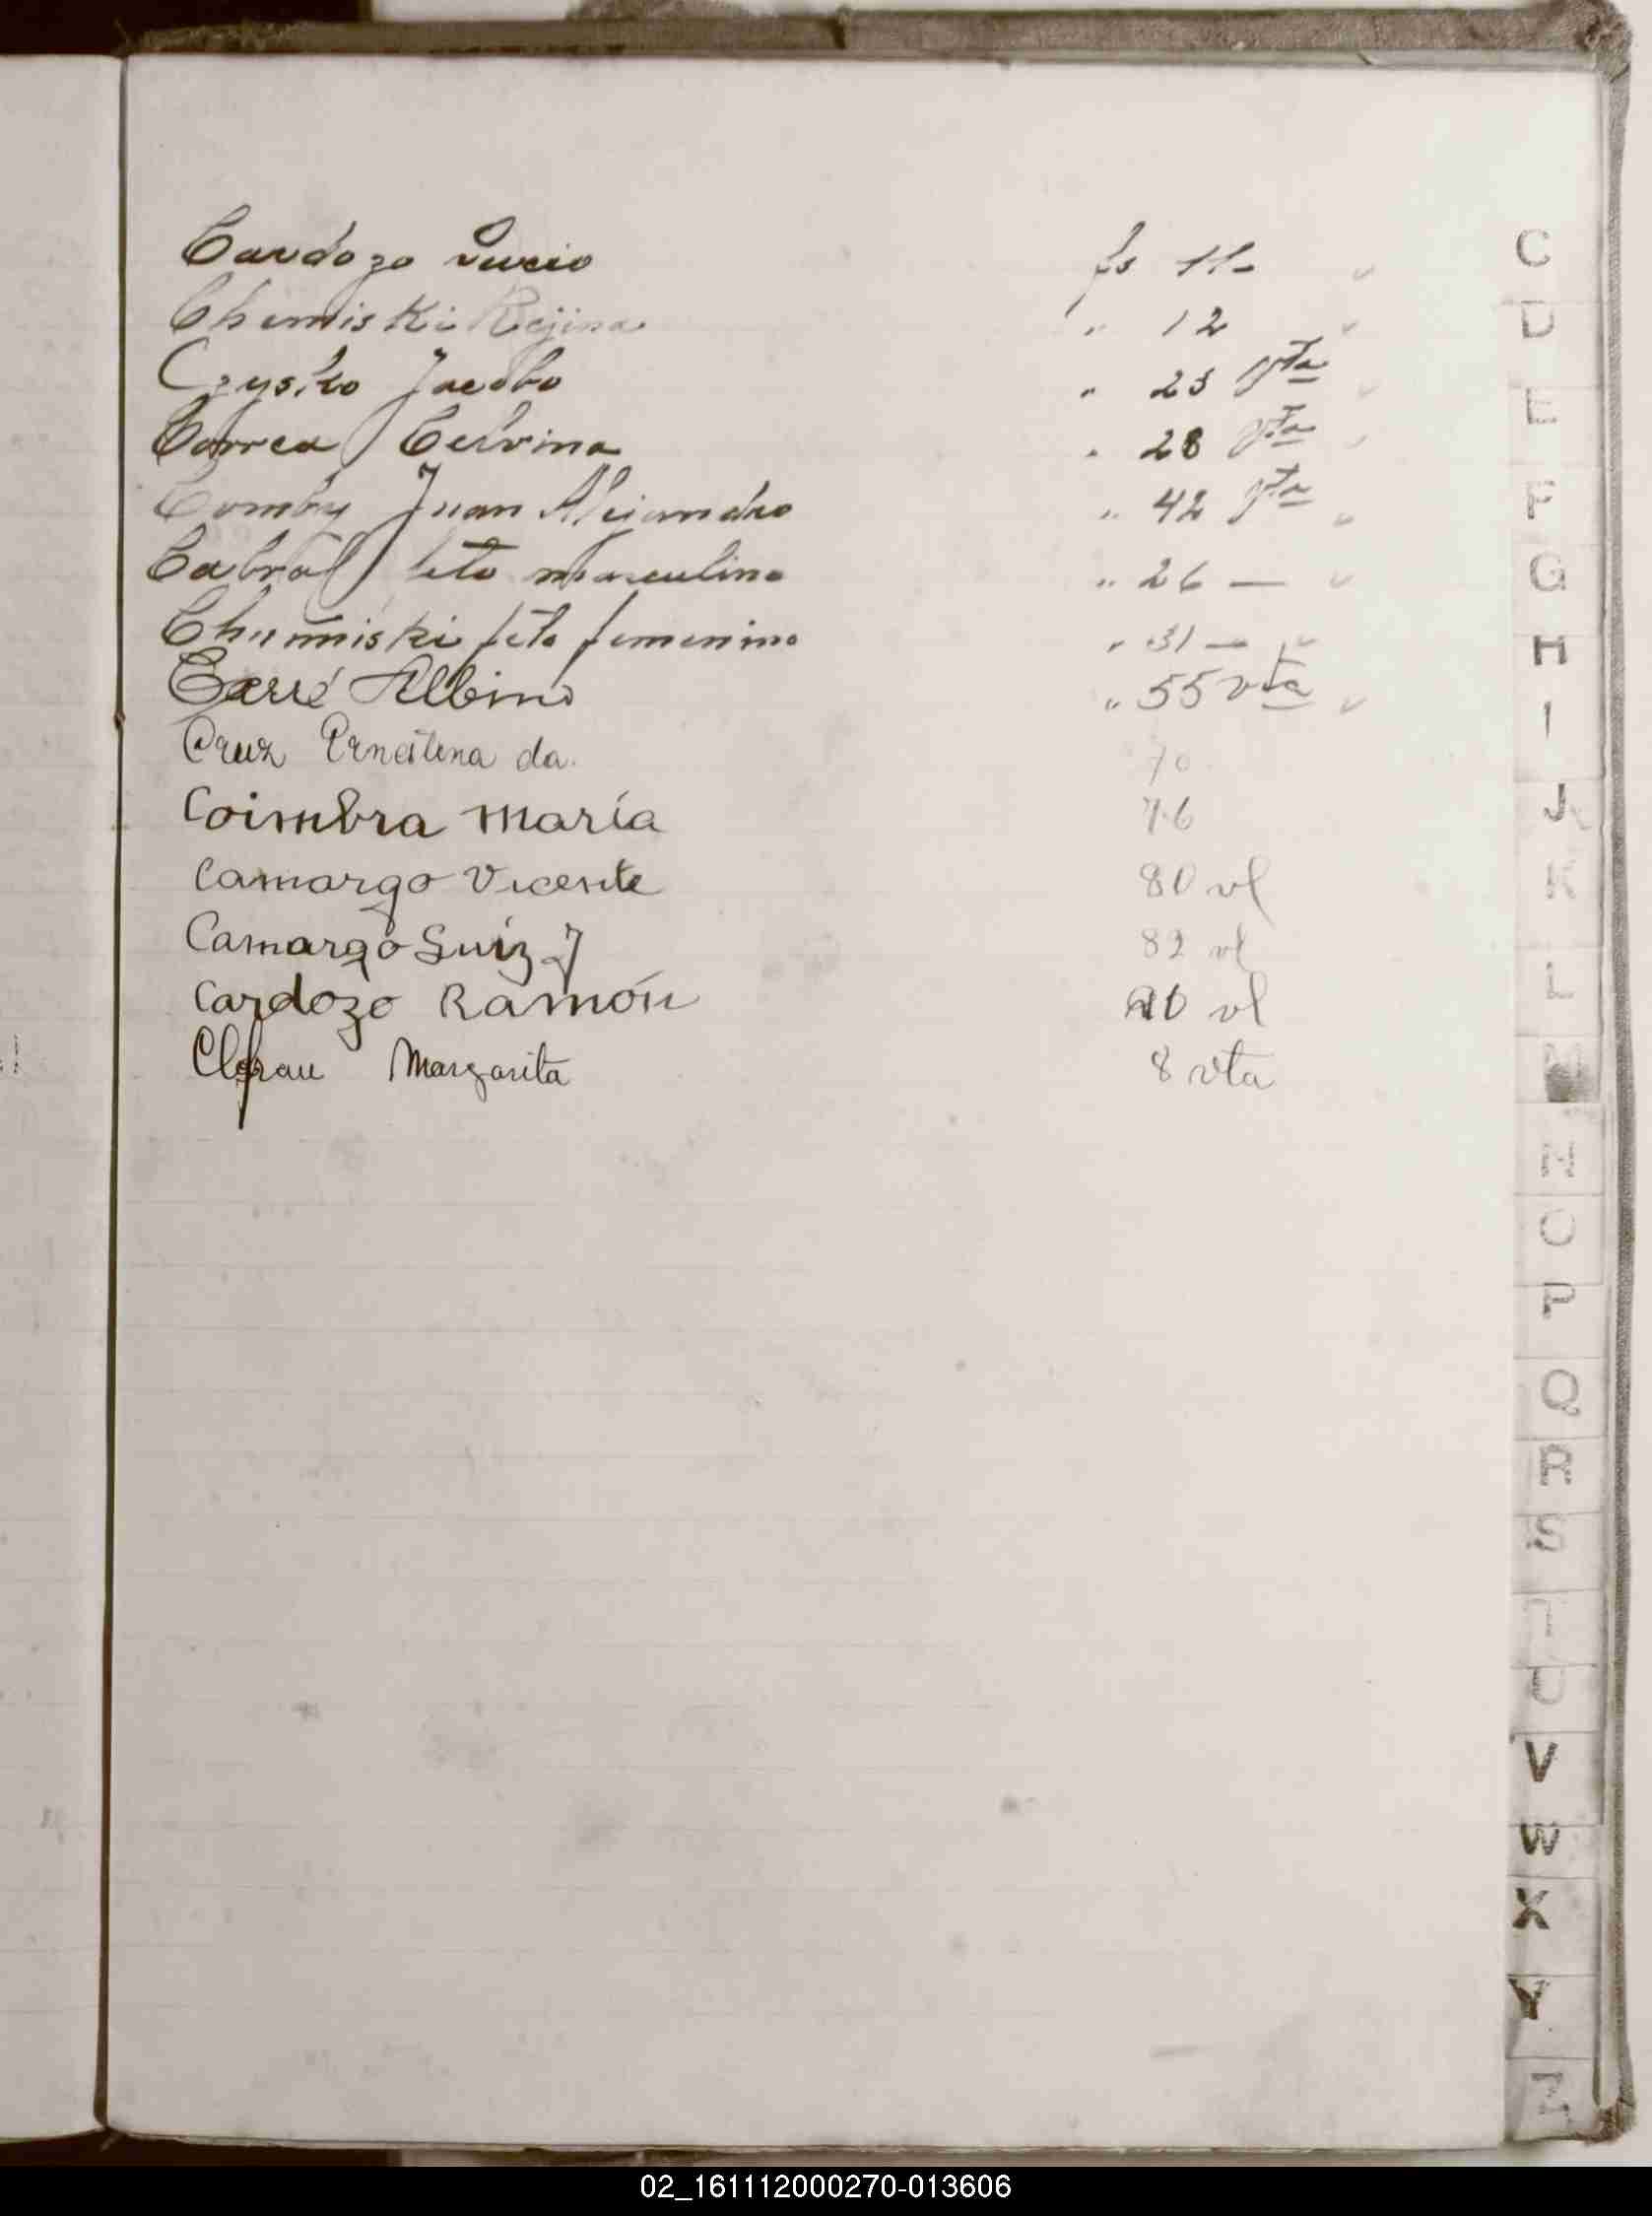 Cardozo Lucio fs 11-
C
Chemiski Rejina " 12
D
Czysko Jacobo " 23 Vta
Correa Celvina " 28 Vta
E
Comby Juan Alejandro " 42 Vta
F
Cabral feto masculino " 26 —
G
Chemiski feto femenino " 31 —
H
Carré Albino " 55 vta
I
Cruz Ernestina da. 70
Coimbra María 76
J
Camargo Vicente 80 vl
K
Camargo Luiz J 82 vl
Cardozo Ramón 90 vl
L
Margarita 8 vta
M
N
O
P
Q
R
S
T
U
V
W
X
Y
Z
02_161112000270-013606